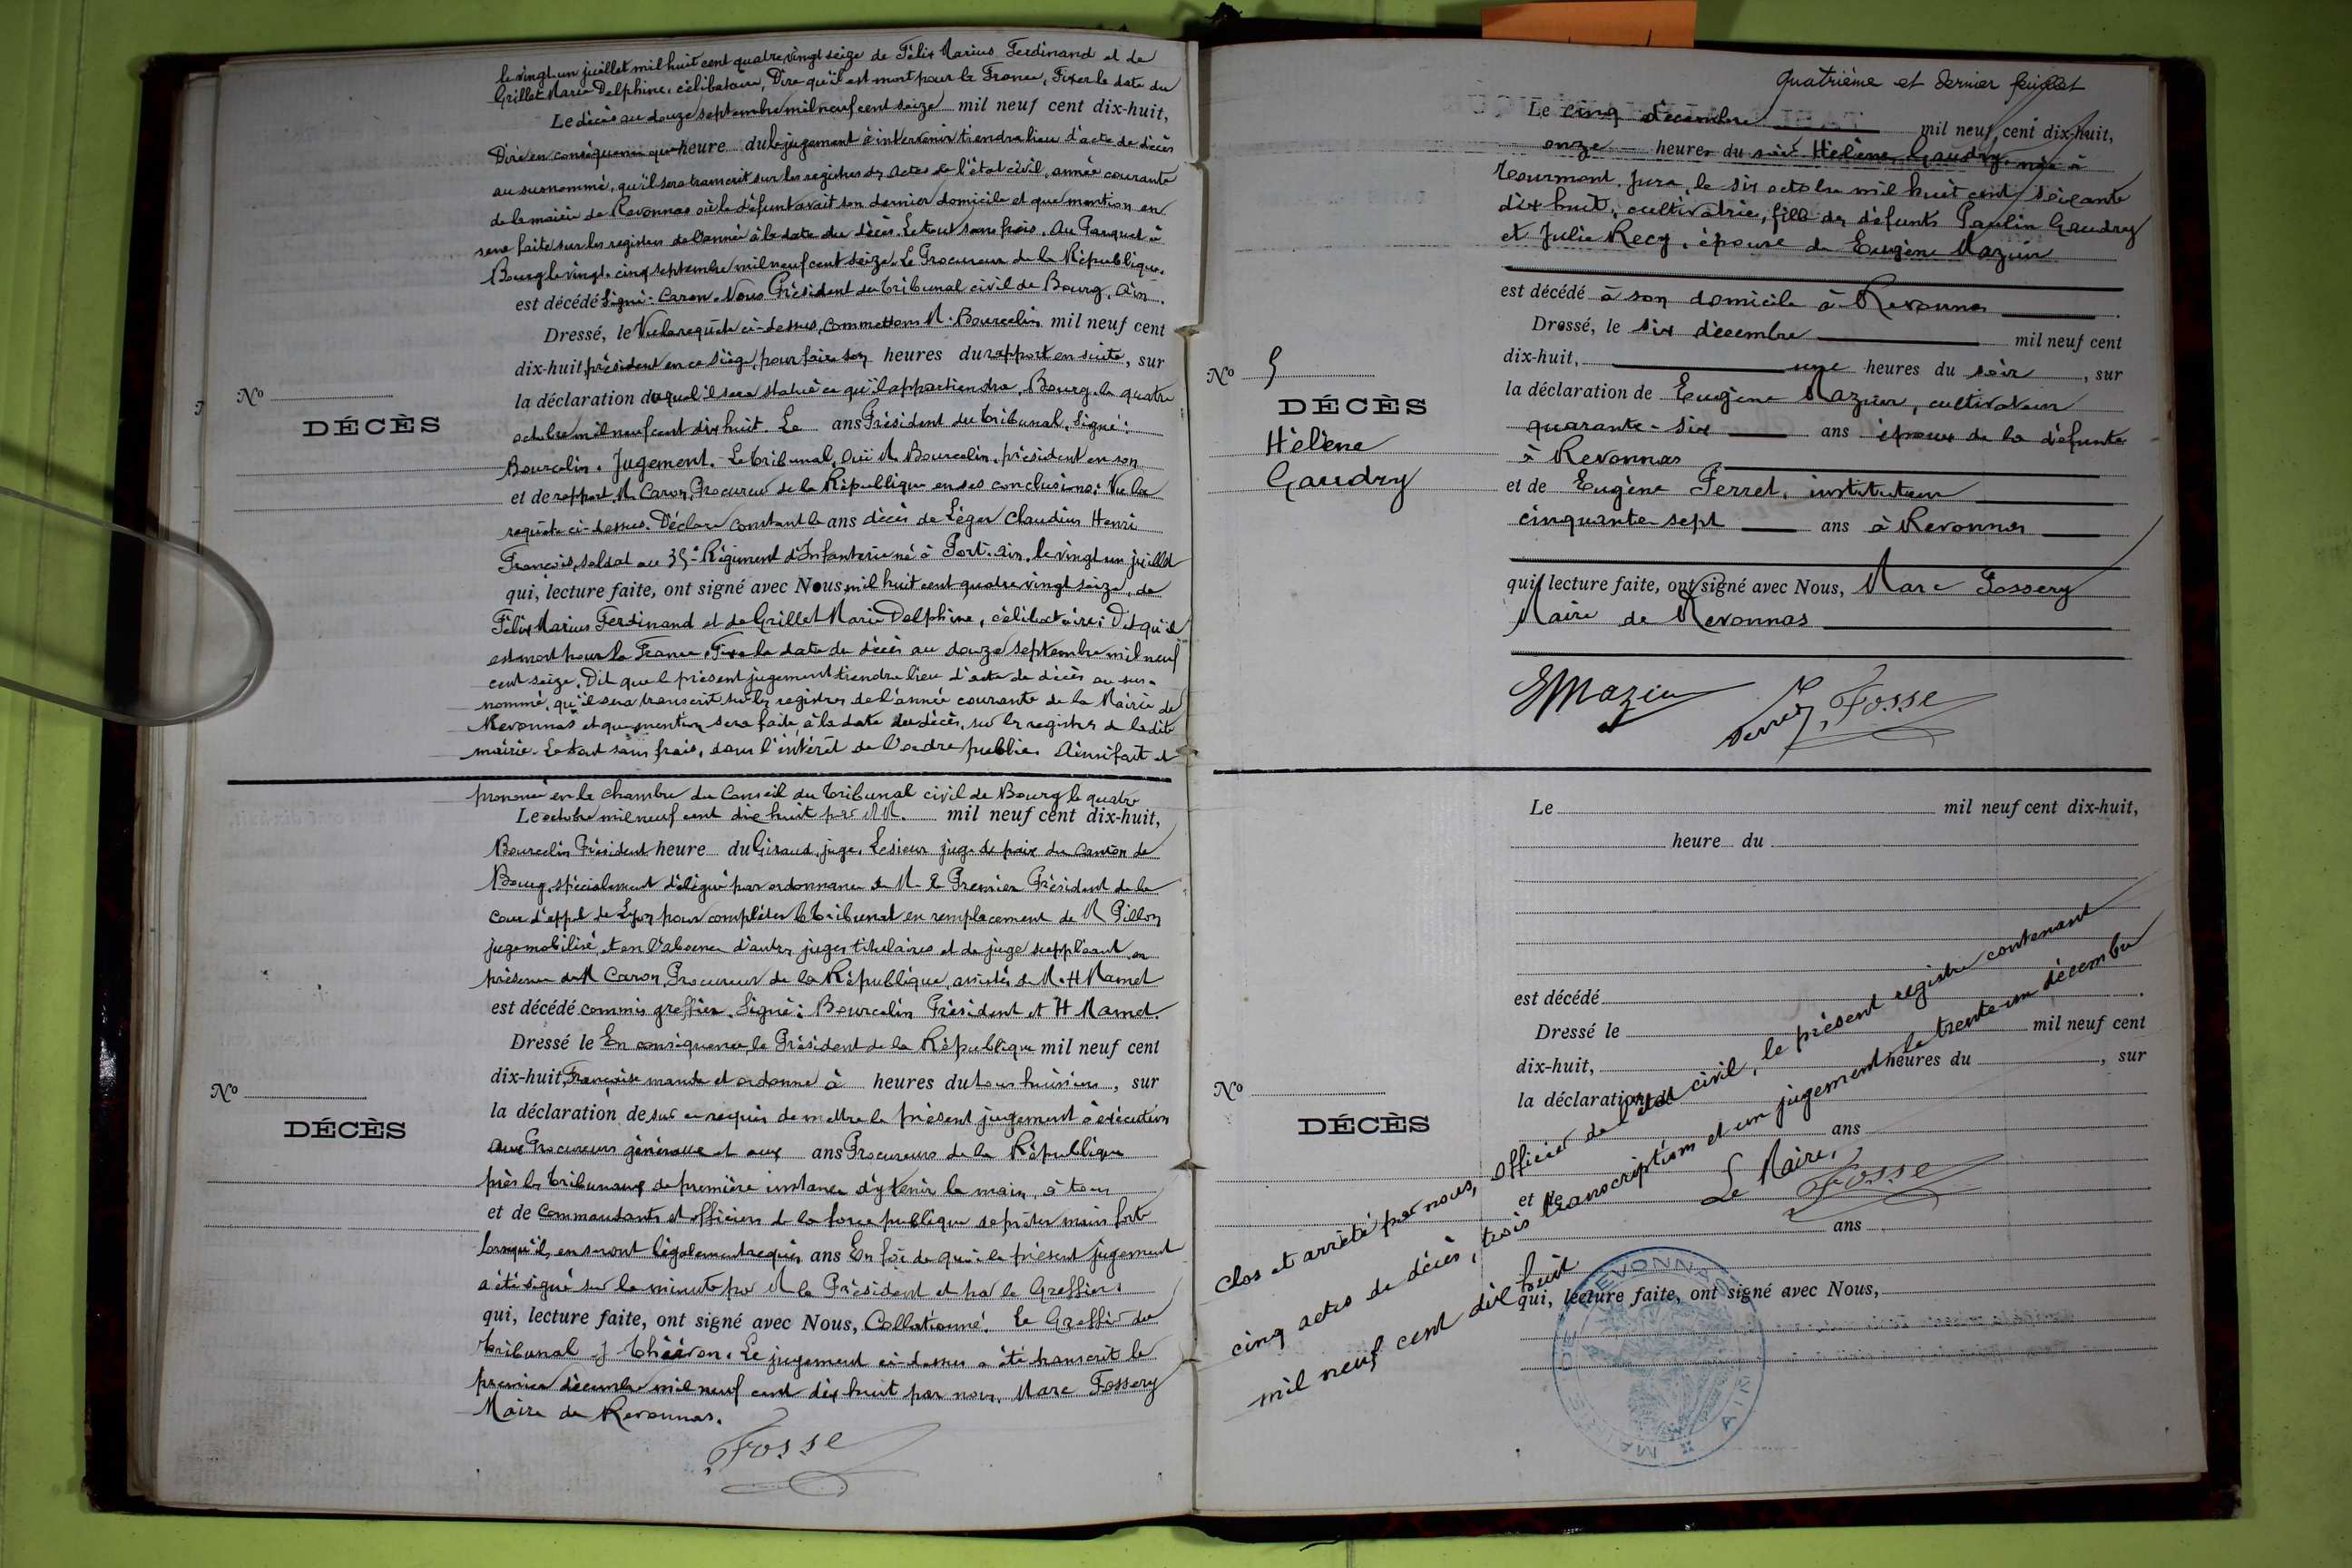 le vingt-un juillet mil huit cent quatre vingt seize de Félix Marius Ferdinand et de
Grillet Marie Delphine, célibataire, Dire qu'il est mort pour la France, Fixer la date du
Le décès au douze septembre mil neuf cent seize mil neuf cent dix-huit,
Dire en conséquence que heure du le jugement à intervenir tiendra lieu d'acte de décès
au susnommé, qu'il sera transcrit sur les registres des actes de l'état civil, année courante
de la mairie de Revonnas où le défunt avait son dernier domicile et que mention en
sera faite sur les registres de l'année à la date du décès. Le tout sans frais. Au Parquet à
Bourg le vingt-cinq septembre mil neuf cent seize. Le Procureur de la République.
est décédé Signé: Caron. Nous Président du tribunal civil de Bourg, Ain.
Dressé, le Vu la requête ci-dessus, commettons M. Bourcelin mil neuf cent
dix-huit, président en ce siège, pour faire son heures du rapport en suite, sur
la déclaration duquel il sera statué ce qu'il appartiendra. Bourg le quatre
octobre mil neuf cent dix huit. Le ans Président du tribunal. Signé:
Nº
DÉCÈS
Bourcelin. Jugement. Le tribunal, Ouï M. Bourcelin, président en son
et de rapport, M. Caron, Procureur de la République en ses conclusions; Vu la
requête ci-dessus. Déclare constant le ans décès de Léger Claudius Henri
François, soldat au 35e Régiment d'Infanterie né à Port. Ain. le vingt un juillet
qui, lecture faite, ont signé avec Nous, mil huit cent quatre vingt seize, de
Félix Marius Ferdinand et de Grillet Marie Delphine, célibataire; Dit qu'il
est mort pour la France. Fixe la date du décès au douze septembre mil neuf
cent seize. Dit que le présent jugement tiendra lieu d'acte de décès au sus-
nommé, qu'il sera transcrit sur les registres de l'année courante de la Mairie de
Revonnas et que mention sera faite à la date du décès, sur les registres de la dite
mairie. Le tout sans frais, dans l'intérêt de l'ordre public. Ainsi fait et
prononcé en la chambre du Conseil du tribunal civil de Bourg le quatre
Le octobre mil neuf cent dix huit par MM. mil neuf cent dix-huit,
Bourcelin Président heure du Giraud, juge, Lesieur juge de paix du canton de
Bourg, spécialement délégué par ordonnance de M. le Premier Président de la
Cour d'appel de Lyon pour compléter le tribunal en remplacement de M. Pillon
juge mobilisé, et en l'absence d'autres juges titulaires et de juge suppléant, en
présence de M. Caron Procureur de la République, assistés de M. H Mamet
est décédé commis greffier. Signé: Bourcelin Président et H Mamet.
Dressé le En conséquence, le Président de la République mil neuf cent
dix-huit, Française mande et ordonne à heures du tous huissiers, sur
Nº
DÉCÈS
la déclaration de sur ce requis de mettre le présent jugement à exécution
aux Procureurs généraux et aux ans Procureurs de la République
près les tribunaux de première instance d'y tenir la main, à tous
et de Commandants et officiers de la force publique de prêter main forte
lorsqu'ils en seront légalement requis ans En foi de quoi le présent jugement
a été signé sur la minute par M le Président et par le Greffier.
qui, lecture faite, ont signé avec Nous, Collationné. Le Greffier du
tribunal J. Thévenon. Le jugement ci-dessus a été transcrit le
premier décembre mil neuf cent dix huit par nous, Marc Fossery
Maire de Revonnas.
Fosse
quatrième et dernier feuillet
Le cinq décembre mil neuf cent dix-huit,
onze heures du soir Hélène Gaudry, née à
Tourmont, Jura, le six octobre mil huit cent soixante
dix huit, cultivatrice, fille des défunts Paulin Gaudry
et Julie Recy, épouse de Eugène Mazuir
est décédé à son domicile à Revonnas
Dressé, le six décembre mil neuf cent
dix-huit, une heures du soir, sur
la déclaration de Eugène Mazuir, cultivateur
quarante-six ans époux de la défunte
à Revonnas
et de Eugène Perret, instituteur
cinquante-sept ans à Revonnas
qui, lecture faite, ont signé avec Nous, Marc Fossery
Maire de Revonnas
Nº 5
DÉCÈS
Hélène
Gaudry
EMazuir
Perret
Fosse
Le mil neuf cent dix-huit,
heure du
est décédé
Dressé le mil neuf cent
dix-huit, heures du , sur
la déclaration de
ans
et de
ans
qui, lecture faite, ont signé avec Nous,
Nº
DÉCÈS
Clos et arrêté par nous, Officier de l'état civil, le présent registre contenant
cinq actes de décès, trois transcriptions et un jugement le trente-un décembre
mil neuf cent dix huit
Le Maire,
Fosse
MAIRIE DE REVONNAS
AIN